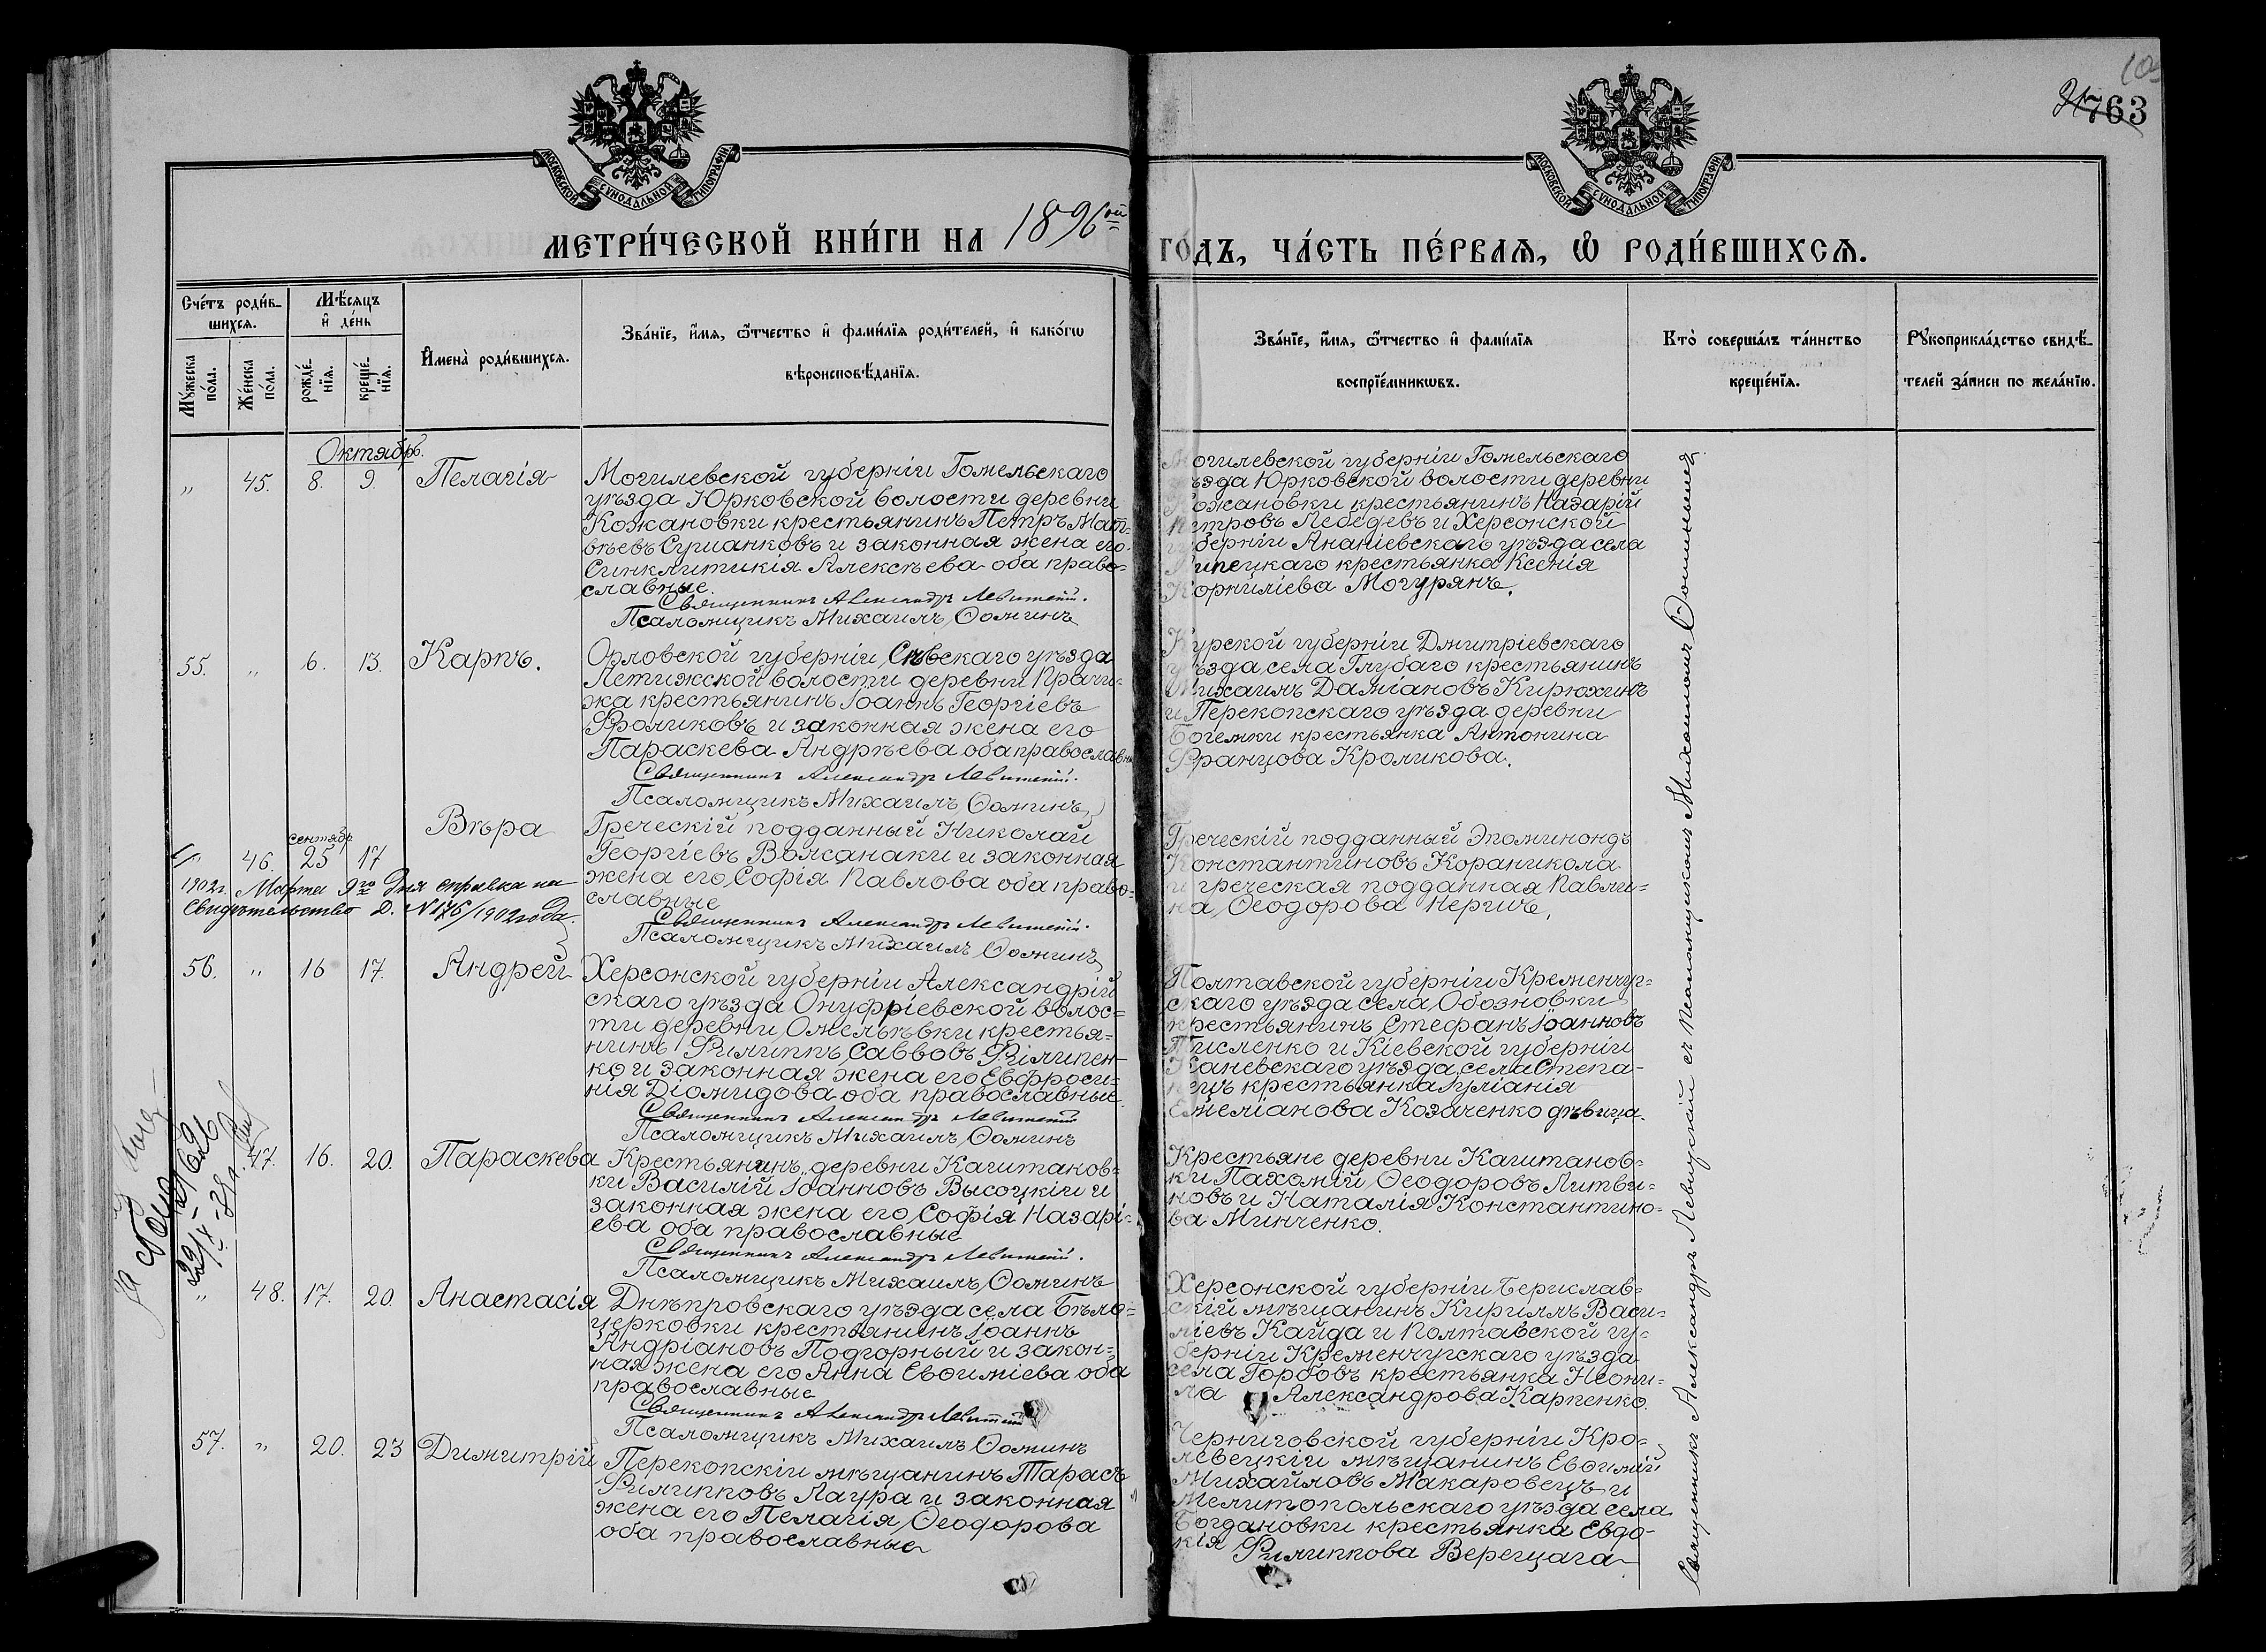 763
МОСКОВСКОЙ СѴНОДАЛЬНОЙ ТИПОГРАФІИ
МОСКОВСКОЙ СѴНОДАЛЬНОЙ ТИПОГРАФІИ
МЕТРИ́ЧЕСКОЙ КНИ́ГИ НА 1896ой
ГО́ДЪ, ЧА́СТЬ ПЕ́РВАѦ, Ѡ҆ РОДИ́ВШИХСѦ.
Сче́тъ роди́в-
шихсѧ.
Мꙋ́жеска по́ла.
Же́нска по́ла.
Мѣ́сѧцъ
и҆ де́нь
рожде́-
нїѧ.
креще́-
нїѧ.
И҆мена̀ роди́вшихсѧ.
Зва́нїе, и҆́мѧ, ѻ҆́тчество и҆ фами́лїѧ роди́телей, и҆ како́гѡ
вѣроисповѣ́данїѧ.
Зва́нїе, и҆́мѧ, ѻ҆́тчество и҆ фами́лїѧ
воспрїе́мникѡвъ.
Кто̀ соверша́лъ та́инство
креще́нїѧ.
Рꙋкоприкла́дство свидѣ́-
телей за́писи по жела́нїю.
Октябрь.
„ 45. 8. 9. Пелагія
Могилевской губерніи Гомельскаго
уѣзда Юрковской волости деревни
Кожановки крестьянинъ Петръ Мат-
вѣевъ Сушанковъ и законная жена его
Синклитикія Алексѣева оба право-
славные.
Священникъ Александръ Левитскій.
Псаломщикъ Михаилъ Ѳоминъ
Могилевской губерніи Гомельскаго
уѣзда Юрковской волости деревни
Кожановки крестьянинъ Назарій
Петровъ Лебедевъ и Херсонской
губерніи Ананіевскаго уѣзда села
Липецкаго крестьянка Ксенія
КорнилІева Могурянъ.
55. „ 6. 13. Карпъ.
Орловской губерніи Сѣвскаго уѣзда
Летижской волости деревни Прачи-
жа крестьянинъ Іоаннъ Георгіевъ
Фроликовъ и законная жена его
Параскева Андрѣева оба православн
Священникъ Александръ Левитскій.
Псаломщикъ Михаилъ Ѳоминъ
Курской губерніи Дмитріевскаго
уѣзда села Глубаго крестьянинъ
Михаилъ Даміановъ Кирюхинъ
и Перекопскаго уѣзда деревни
Богемки крестьянка Антонина
Францова Кроликова.
сентябр
„ 46. 25 17 Вѣра
1902г. Марта 9го дня справка на
свидѣтельство D. №176/1902 года
Греческій подданный Николай
Георгіевъ Волсанаки и законная
жена его Софія Павлова оба право-
славные
Священникъ Александръ Левитскій.
Псаломщикъ Михаилъ Ѳоминъ
Греческій подданный Эпоминондъ
Константиновъ Кораникола
и греческая подданная Павли-
на Ѳеодорова Нергичъ.
56. „ 16 17. Андрей
Херсонской губерніи Александрій
скаго уѣзда Онуфріевской волос-
ти деревни Омельѣвки крестья-
нинъ Филиппъ Саввовъ Філипен-
ко и законная жена его Евфроси-
нія Діомидова оба православные
Священникъ Александръ Левитскій
Псаломщикъ Михаилъ Ѳоминъ
Полтавской губерніи Кременчуг-
скаго уѣзда села Обозновки
крестьянинъ Стефанъ Іоанновъ
Писленко и Кіевской губерніи
Каневскаго уѣзда села Степа-
нецъ крестьянка Іуліанія
Емеліанова Козаченко дѣвица.
47. 16. 20. Параскева
Крестьянинъ деревни Каштанов-
ки Василій Іоанновъ Высоцкій и
законная жена его Софія Назарі-
ева оба православные
Священникъ Александръ Левитскій.
Псаломщикъ Михаилъ Ѳоминъ
Крестьяне деревни Каштанов-
ки Пахомій Ѳеодоровъ Литви-
новъ и Наталія Константино-
ва Минченко.
„ 48. 17. 20. Анастасія
Днѣпровскаго уѣзда села Бѣло-
церковки крестьянинъ Іоаннъ
Андріановъ Подгорный и закон-
ная жена его Анна Евѳиміева оба
православные
Священникъ Александръ Левитскій
Псаломщикъ Михаилъ Ѳоминъ
Херсонской губерніи Берислав-
скій мѣщанинъ Кириллъ Васи-
ліевъ Кайда и Полтавской гу-
берніи Кременчугскаго уѣзда
села Горбовъ крестьянка Неони-
ла Александрова Карпенко.
57. „ 20. 23 Димитрій
Перекопскій мѣщанинъ Тарасъ
Филипповъ Лаура и законная
жена его Пелагія Ѳеодорова
оба православные
Черниговской губерніи Кро-
левецкій мѣщанинъ Евѳимій
Михайловъ Макаровецъ и
Мелитопольскаго уѣзда села
Богдановки крестьянка Евдо-
кія Филиппова Верещага
Священникъ Александръ Левитскій съ Псаломщикомъ Михаиломъ Ѳоминымъ